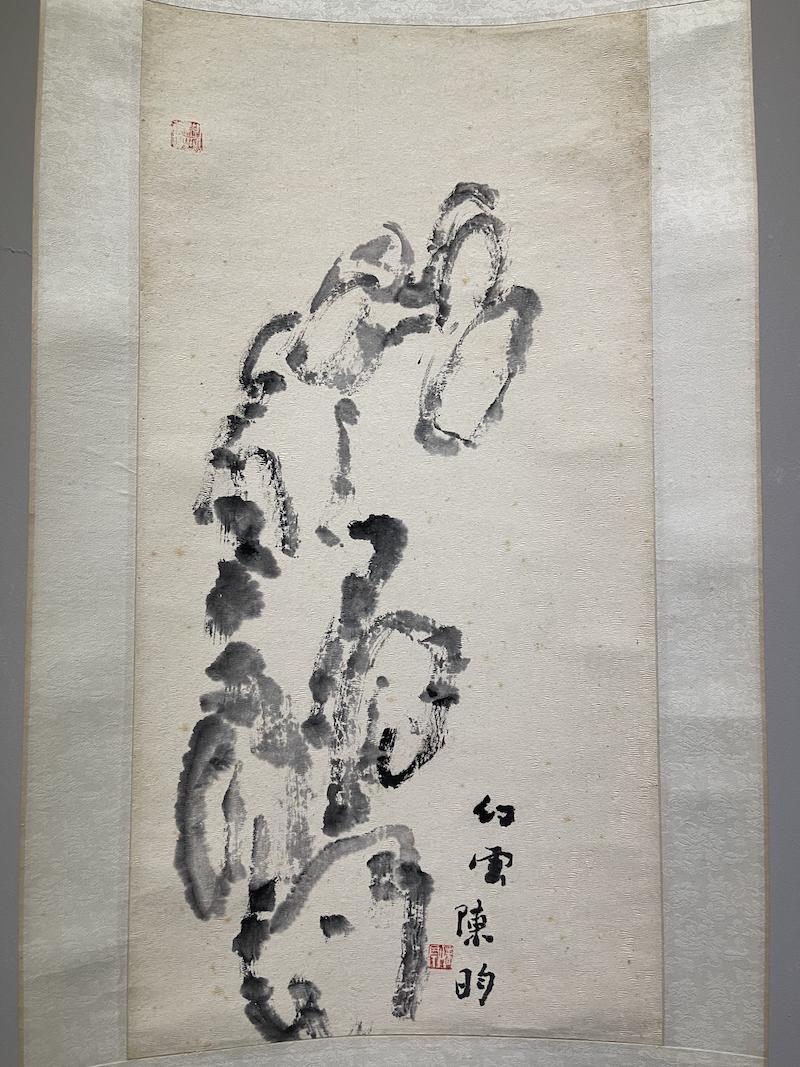 幻雲陳昀